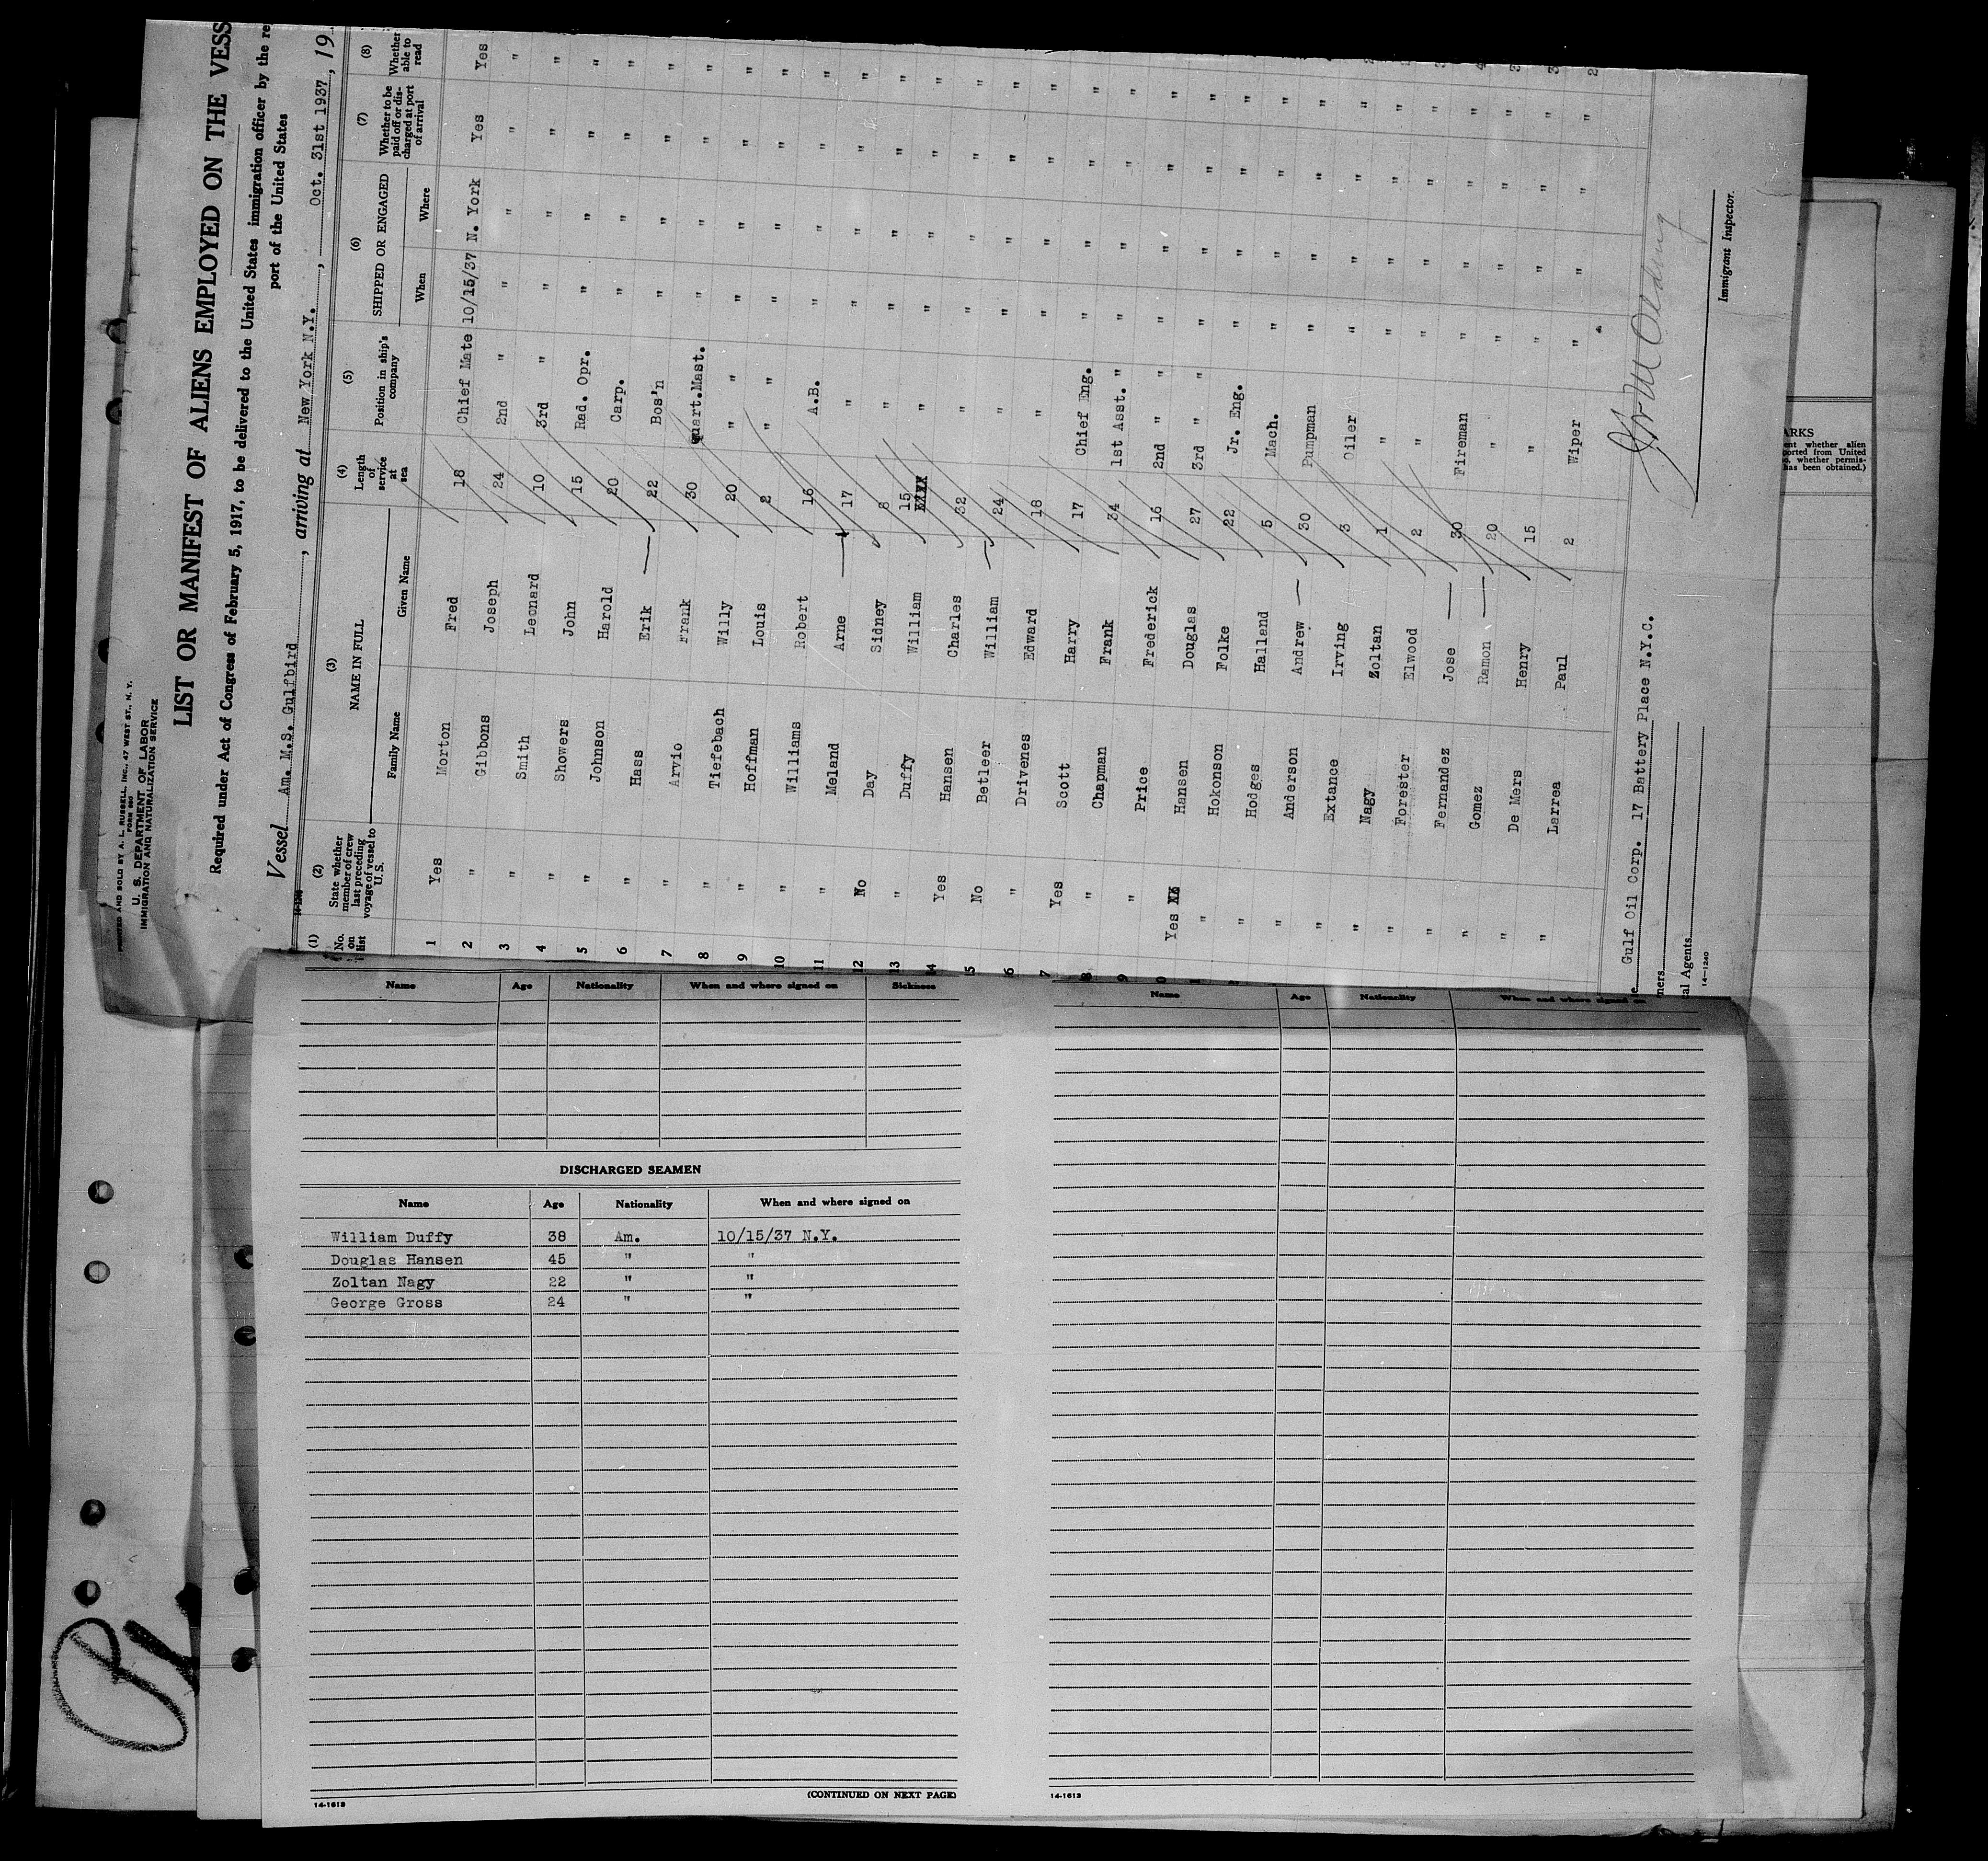 PRINTED AND SOLD BY A. L. RUSSELL, INC., 47 WEST ST., N. Y.
FORM 680
U. S. DEPARTMENT OF LABOR
IMMIGRATION AND NATURALIZATION SERVICE
LIST OR MANIFEST OF ALIENS EMPLOYED ON THE VESS
Required under Act of Congress of February 5, 1917, to be delivered to the United States immigration officer by the re
port of the United States
Vessel Am. M.S. Gulfbird , arriving at New York N.Y. , Oct. 31st 1937, 19
(1) No. on list (2) State whether member of crew last preceding voyage of vessel to U.S. (3) NAME IN FULL Family Name Given Name (4) Length of service at sea (5) Position in ship's company (6) SHIPPED OR ENGAGED When Where (7) Whether to be paid off or discharged at port of arrival (8) Whether able to read
1 Yes Morton Fred 18 Chief Mate 10/15/37 N. York Yes Yes
2 " Gibbons Joseph 24 2nd " " " " "
3 " Smith Leonard 10 3rd " " " " "
4 " Showers John 15 Rad. Opr. " " " "
5 " Johnson Harold 20 Carp. " " " "
6 " Hass Erik 22 Bos'n " " " "
7 " Arvio Frank 30 Quart.Mast. " " " "
8 " Tiefebach Willy 20 " " " " " "
9 " Hoffman Louis 2 " " " " " "
10 " Williams Robert 16 A.B. " " " "
11 " Meland Arne 17 " " " " "
12 No Day Sidney 8 " " " " "
13 " Duffy William 15 " " " " "
14 Yes Hansen Charles 32 " " " " "
15 No Betler William 24 " " " " "
6 " Drivenes Edward 18 " " " " "
7 Yes Scott Harry 17 Chief Eng. " " " "
8 " Chapman Frank 34 1st Asst. " " " " "
9 " Price Frederick 16 2nd " " " " " "
0 Yes Hansen Douglas 27 3rd " " " " " "
" Hokonson Folke 22 Jr. Eng. " " " "
" Hodges Halland 5 Mach. " " " "
" Anderson Andrew 30 Pumpman " " " "
" Extance Irving 3 Oiler " " " "
" Nagy Zoltan 1 " " " " "
" Forester Elwood 2 " " " " "
" Fernandez Jose 30 Fireman " " "
" Gomez Ramon 20 " " " "
" De Mers Henry 15 " " " "
" Larrea Paul 2 Wiper " " "
Gulf Oil Corp. 17 Battery Place N.Y.C.
ners
al Agents
14-1240
Immigrant Inspector.
ARKS
ent whether alien
ported from United
o, whether permis-
has been obtained.)
Name Age Nationality When and where signed on Sickness
DISCHARGED SEAMEN
Name Age Nationality When and where signed on
William Duffy 38 Am. 10/15/37 N.Y.
Douglas Hansen 45 " "
Zoltan Nagy 22 " "
George Gross 24 " "
(CONTINUED ON NEXT PAGE)
14-1613
Name Age Nationality When and where signed on
14-1613